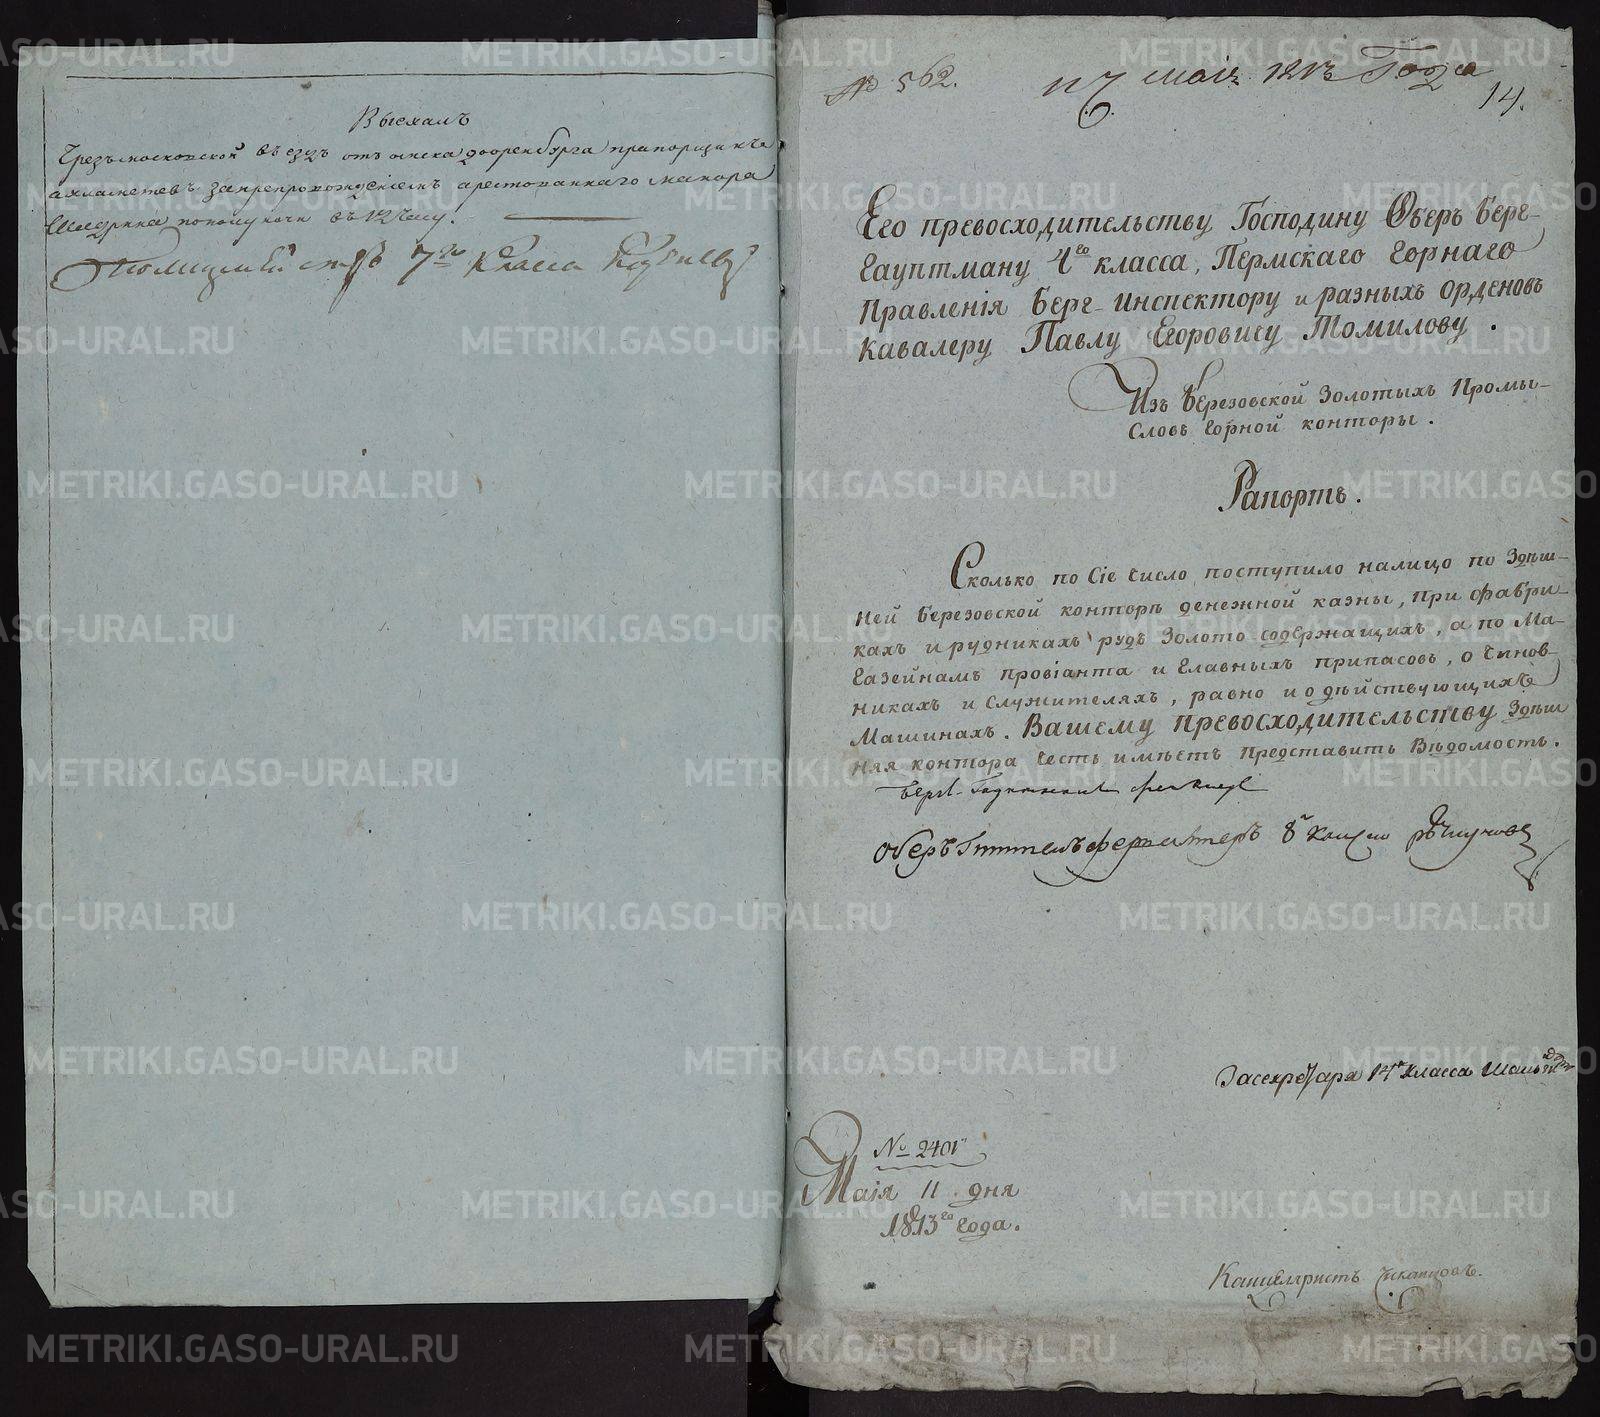 Выехалъ
Чрезъ московской въездъ отъ омска до оренбурга прапорщикъ
ахламетевъ запрепровождениемъ арестованнаго маиора
пополуночи въ 12 часу.
Полицмейстръ 7го класса
№ 562.
маія 1813 Года
14.
Его превосходительству Господину Оберъ Берг-
гауптману 4го класса, Пермскаго горнаго
Правленія Берг-инспектору и разныхъ орденовъ
кавалеру Павлу Егоровичу Томилову.
Изъ Березовской Золотыхъ Промы-
словъ горной конторы.
Рапортъ.
Сколько по Сіе число поступило налицо по Здѣш-
ней Березовской конторѣ денежной казны, при фабри-
кахъ и рудникахъ рудъ Золото содержащихъ, а по Ма-
газейнамъ провіанта и главныхъ припасовъ, о чинов-
никахъ и Служителяхъ, равно и о дѣйствующихъ
Машинахъ. Вашему превосходительству Здѣш
няя контора честь имѣетъ представить Вѣдомость.
Оберъ Гиттенъ фервалтеръ 8го класса
Засекретаря 14го класса
№ 2401
Маія 11 дня
1813го года.
Канцеляристъ
METRIKI.GASO-URAL.RU